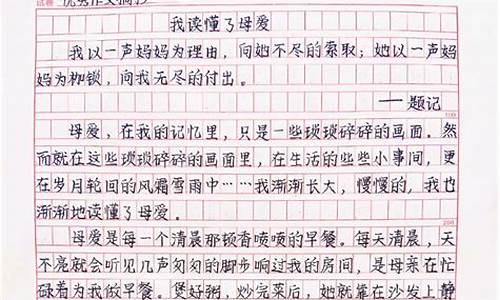 试卷
优秀作文摘抄
我读懂了母爱
我以一声妈妈为理由，向她不尽的索取；她以一声妈
妈为枷锁，向我无尽的付出。
——题记
100
母爱，在我的记忆里，只是一些琐琐碎碎的画面。然
而就在这些琐琐碎碎的画面里，在生活的些些小事间，更
在岁月轮回的风霜雪雨中……我渐渐长大，慢慢的，我也
渐渐地读懂了母爱。
200
母爱是每一个清晨那顿香喷喷的早餐。每天清晨，天
不亮就会听见几声匆匆的脚步响过我的房间，是母亲在忙
碌着为我做早餐。煲好粥，炒完菜后，她就靠在沙发上静